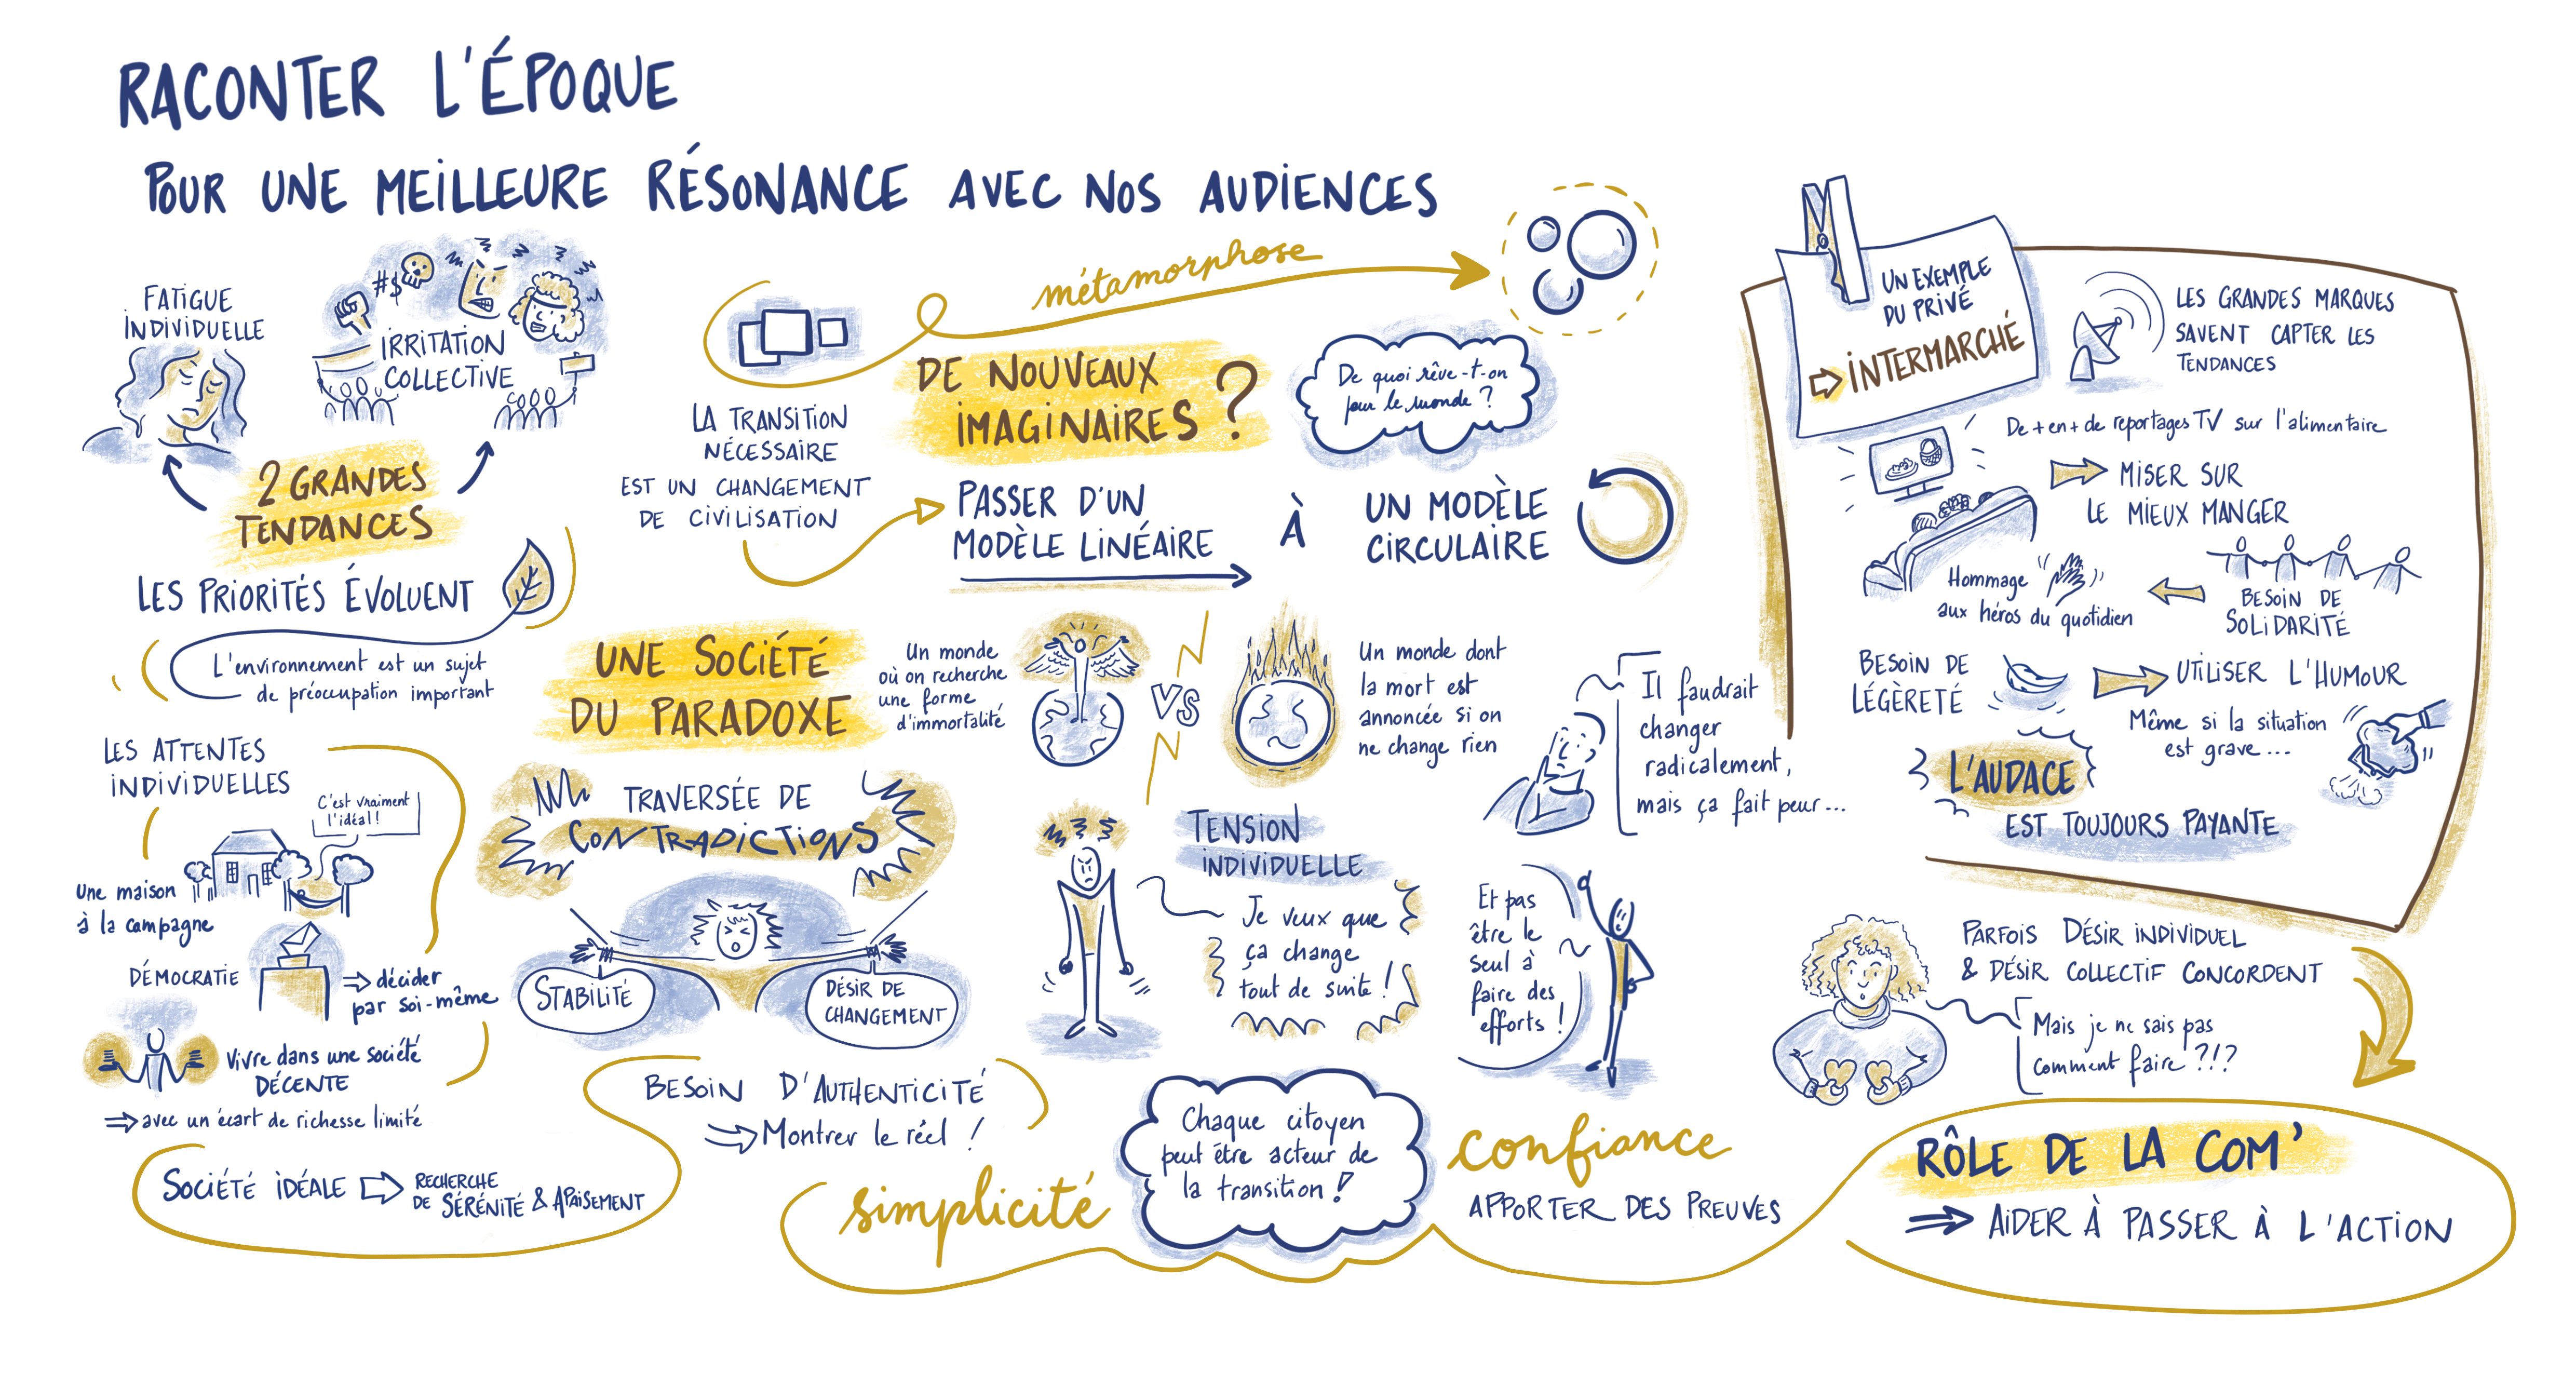 RACONTER L'ÉPOQUE
POUR UNE MEILLEURE RÉSONANCE AVEC NOS AUDIENCES
FATIGUE
INDIVIDUELLE
#$
IRRITATION
COLLECTIVE
2 GRANDES
TENDANCES
LES PRIORITÉS ÉVOLUENT
L'environnement est un sujet
de préoccupation important
LES ATTENTES
INDIVIDUELLES
C'est vraiment
l'idéal !
Une maison
à la campagne
DÉMOCRATIE
⇒ décider
par soi-même
Vivre dans une société
DÉCENTE
⇒ avec un écart de richesse limité
SOCIÉTÉ IDÉALE ⇒ RECHERCHE
DE SÉRÉNITÉ & APAISEMENT
métamorphose
LA TRANSITION
NÉCESSAIRE
EST UN CHANGEMENT
DE CIVILISATION
DE NOUVEAUX
IMAGINAIRES ?
De quoi rêve-t-on
pour le monde ?
PASSER D'UN
MODÈLE LINÉAIRE
À
UN MODÈLE
CIRCULAIRE
UNE SOCIÉTÉ
DU PARADOXE
Un monde
où on recherche
une forme
d'immortalité
VS
Un monde dont
la mort est
annoncée si on
ne change rien
TRAVERSÉE DE
CONTRADICTIONS
STABILITÉ
DÉSIR DE
CHANGEMENT
TENSION
INDIVIDUELLE
Je veux que
ça change
tout de suite !
Il faudrait
changer
radicalement,
mais ça fait peur...
Et pas
être le
seul à
faire des
efforts !
BESOIN D'AUTHENTICITÉ
⇒ Montrer le réel !
simplicité
Chaque citoyen
peut être acteur de
la transition !
confiance
APPORTER DES PREUVES
UN EXEMPLE
DU PRIVÉ
⇒ INTERMARCHÉ
LES GRANDES MARQUES
SAVENT CAPTER LES
TENDANCES
De + en + de reportages TV sur l'alimentaire
MISER SUR
LE MIEUX MANGER
Hommage
aux héros du quotidien
BESOIN DE
SOLIDARITÉ
BESOIN DE
LÉGÈRETÉ
UTILISER L'HUMOUR
Même si la situation
est grave...
L'AUDACE
EST TOUJOURS PAYANTE
PARFOIS DÉSIR INDIVIDUEL
& DÉSIR COLLECTIF CONCORDENT
Mais je ne sais pas
comment faire ?!?
RÔLE DE LA COM'
⇒ AIDER À PASSER À L'ACTION